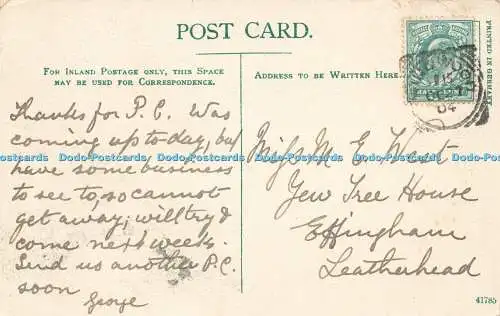 POST CARD.
PRINTED IN GERMANY
FOR INLAND POSTAGE ONLY, THIS SPACE
MAY BE USED FOR CORRESPONDENCE.
ADDRESS TO BE WRITTEN HERE.
HALF PENNY
04
Thanks for P.C. Was
coming up to-day, but
have some business
to see to, so cannot
get away; will try &
come next week.
Send us another P.C.
soon
George
Miss M E West
Yew Tree House
Effingham
Leatherhead
41785
Dodo-Postcards Dodo-Postcards Dodo-Postcards Dodo-Postcards Dodo-Postcards